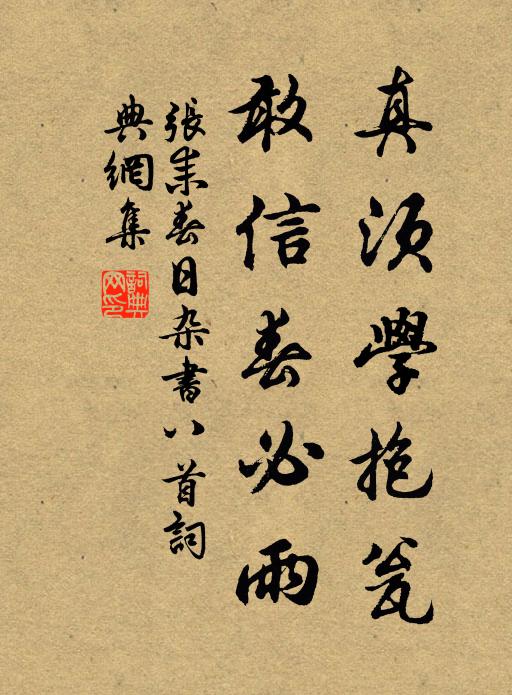 真須學抱瓮
敢信春必雨
張耒春日杂書八首詞
典網集
詞典
网印